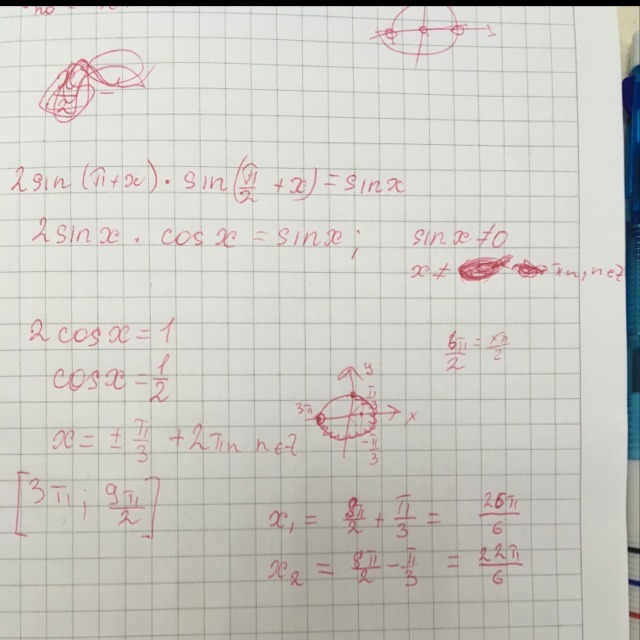 2sin(π+x)·sin(π/2+x)=sinx
2sinx·cosx=sinx; sinx≠0
x≠ πn, n∈Z
2cosx=1 6π/2=xπ/2
cosx=1/2 y
π/3
3π x
x=±π/3+2πn n∈Z -π/3
[3π; 9π/2] x₁=8π/2+π/3=26π/6
x₂=8π/2-π/3=22π/6